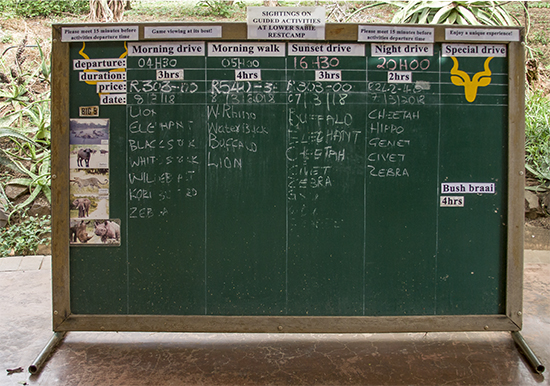 SIGHTINGS ON
GUIDED ACTIVITIES
AT LOWER SABIE
RESTCAMP
Please meet 15 minutes before
activities departure time
Game viewing at its best!
Please meet 15 minutes before
activities departure time
Enjoy a unique experience!
Morning drive Morning walk Sunset drive Night drive Special drive
departure: 04H30 05H00 16H30 20H00
duration: 3hrs 4hrs 3hrs 2hrs
price:
date: 8/3/18 07/3/18
LION W. RHINO BUFFALO CHEETAH
ELEPHANT Waterbuck ELEPHANT HIPPO
BLACK BUFFALO CHEETAH GENET
WHITE LION CIVET CIVET
ZEBRA ZEBRA
KORI
ZEBRA
Bush braai
4hrs